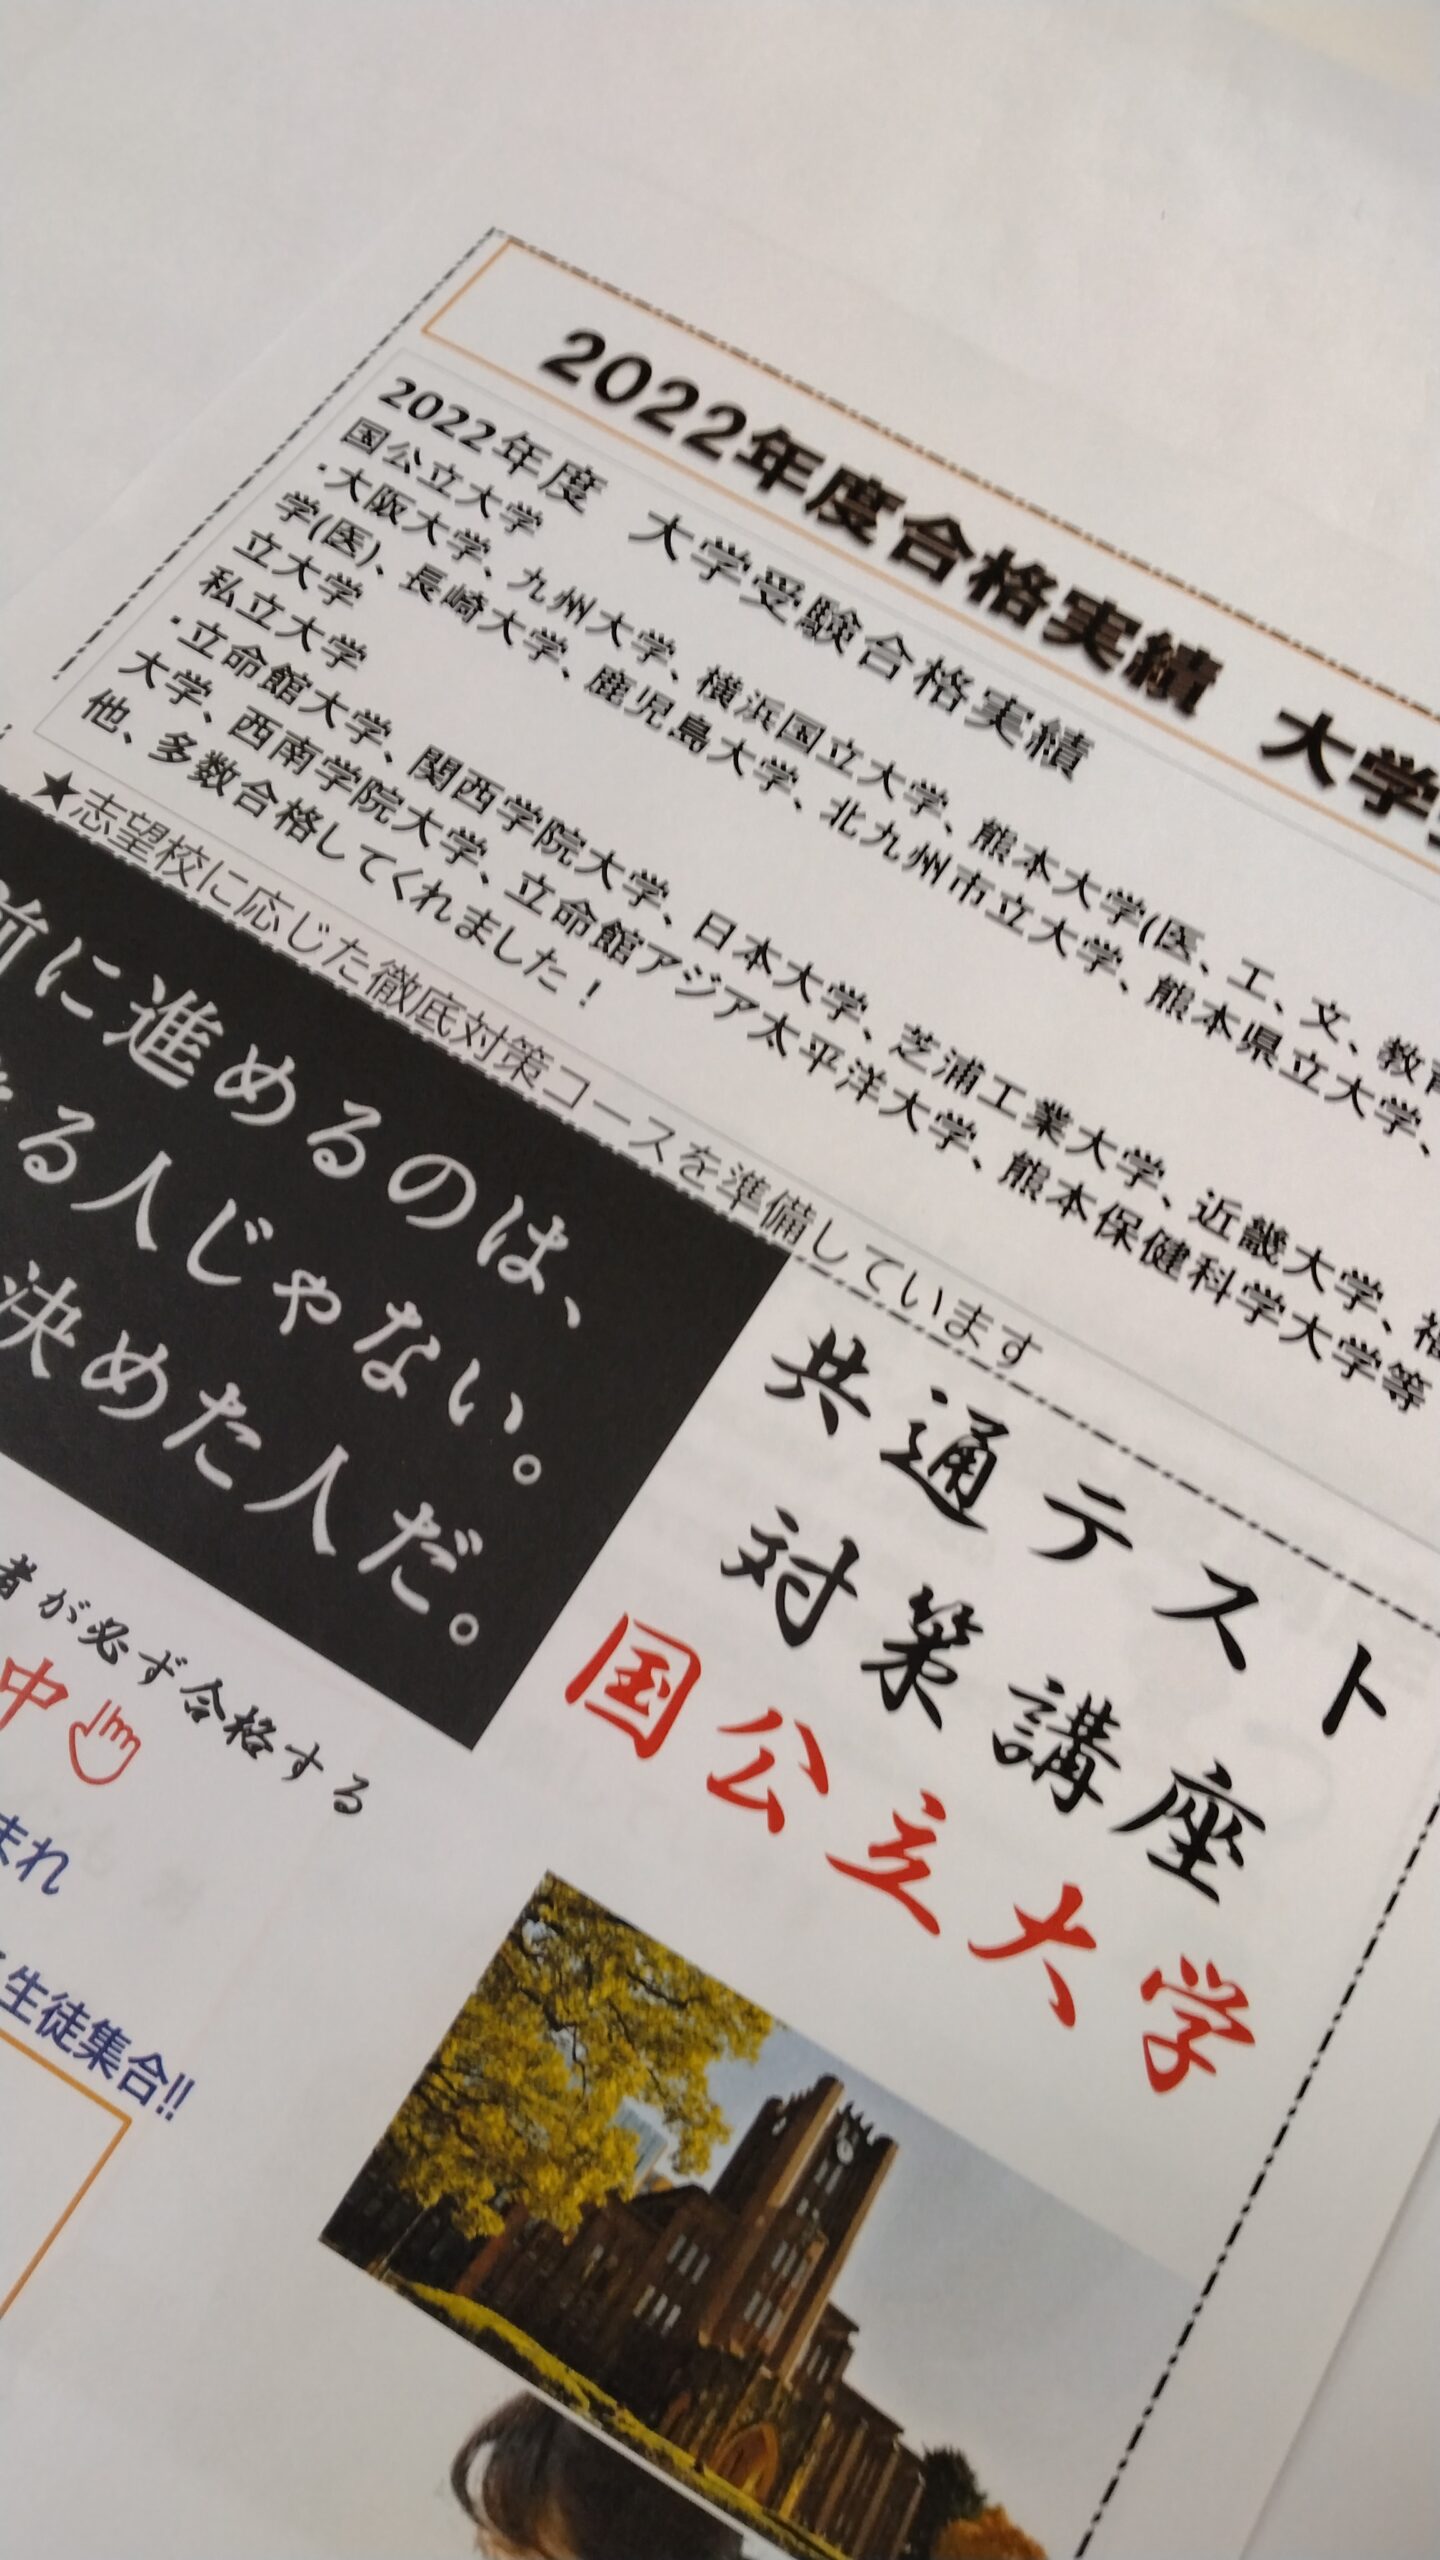 2022年度合格実績　大学
2022年度　大学受験合格実績
国公立大学
・大阪大学、九州大学、横浜国立大学、熊本大学(医、工、文、教育
学(医)、長崎大学、鹿児島大学、北九州市立大学、熊本県立大学、
立大学
私立大学
・立命館大学、関西学院大学、日本大学、芝浦工業大学、近畿大学、福
大学、西南学院大学、立命館アジア太平洋大学、熊本保健科学大学等
他、多数合格してくれました！
★志望校に応じた徹底対策コースを準備しています
前に進めるのは、
る人じゃない。
決めた人だ。
共通テスト
対策講座
国公立大学
者が必ず合格する
中
まれ
生徒集合!!